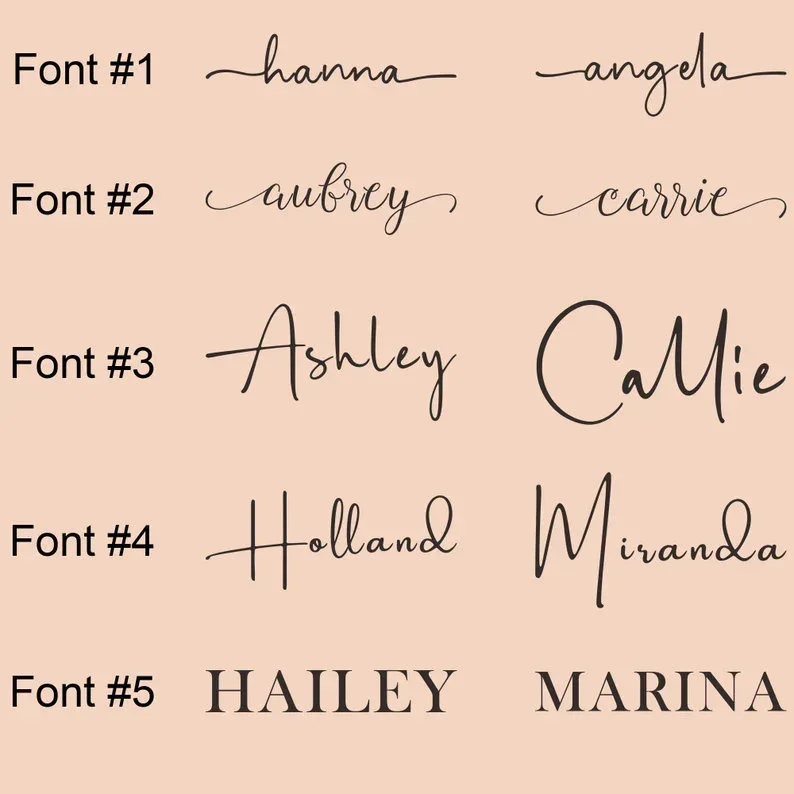 Font #1 hanna angela
Font #2 aubrey carrie
Font #3 Ashley Callie
Font #4 Holland Miranda
Font #5 HAILEY MARINA